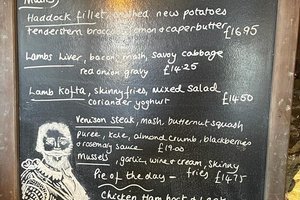 Mains
Haddock fillet, crushed new potatoes
tenderstem brocc lemon & caperbutter £16.95
Lambs Liver, bacon, mash, savoy cabbage
red onion gravy £14.25
Lamb Kofta, skinny fries, mixed salad
coriander yoghurt £14.50
Venison steak, mash, butternut squash
puree, kale, almond crumb, blackberries
& rosemary sauce £19.00
Mussels, garlic, wine & cream, skinny
fries £14.75
Pie of the day –
Chicken, Ham